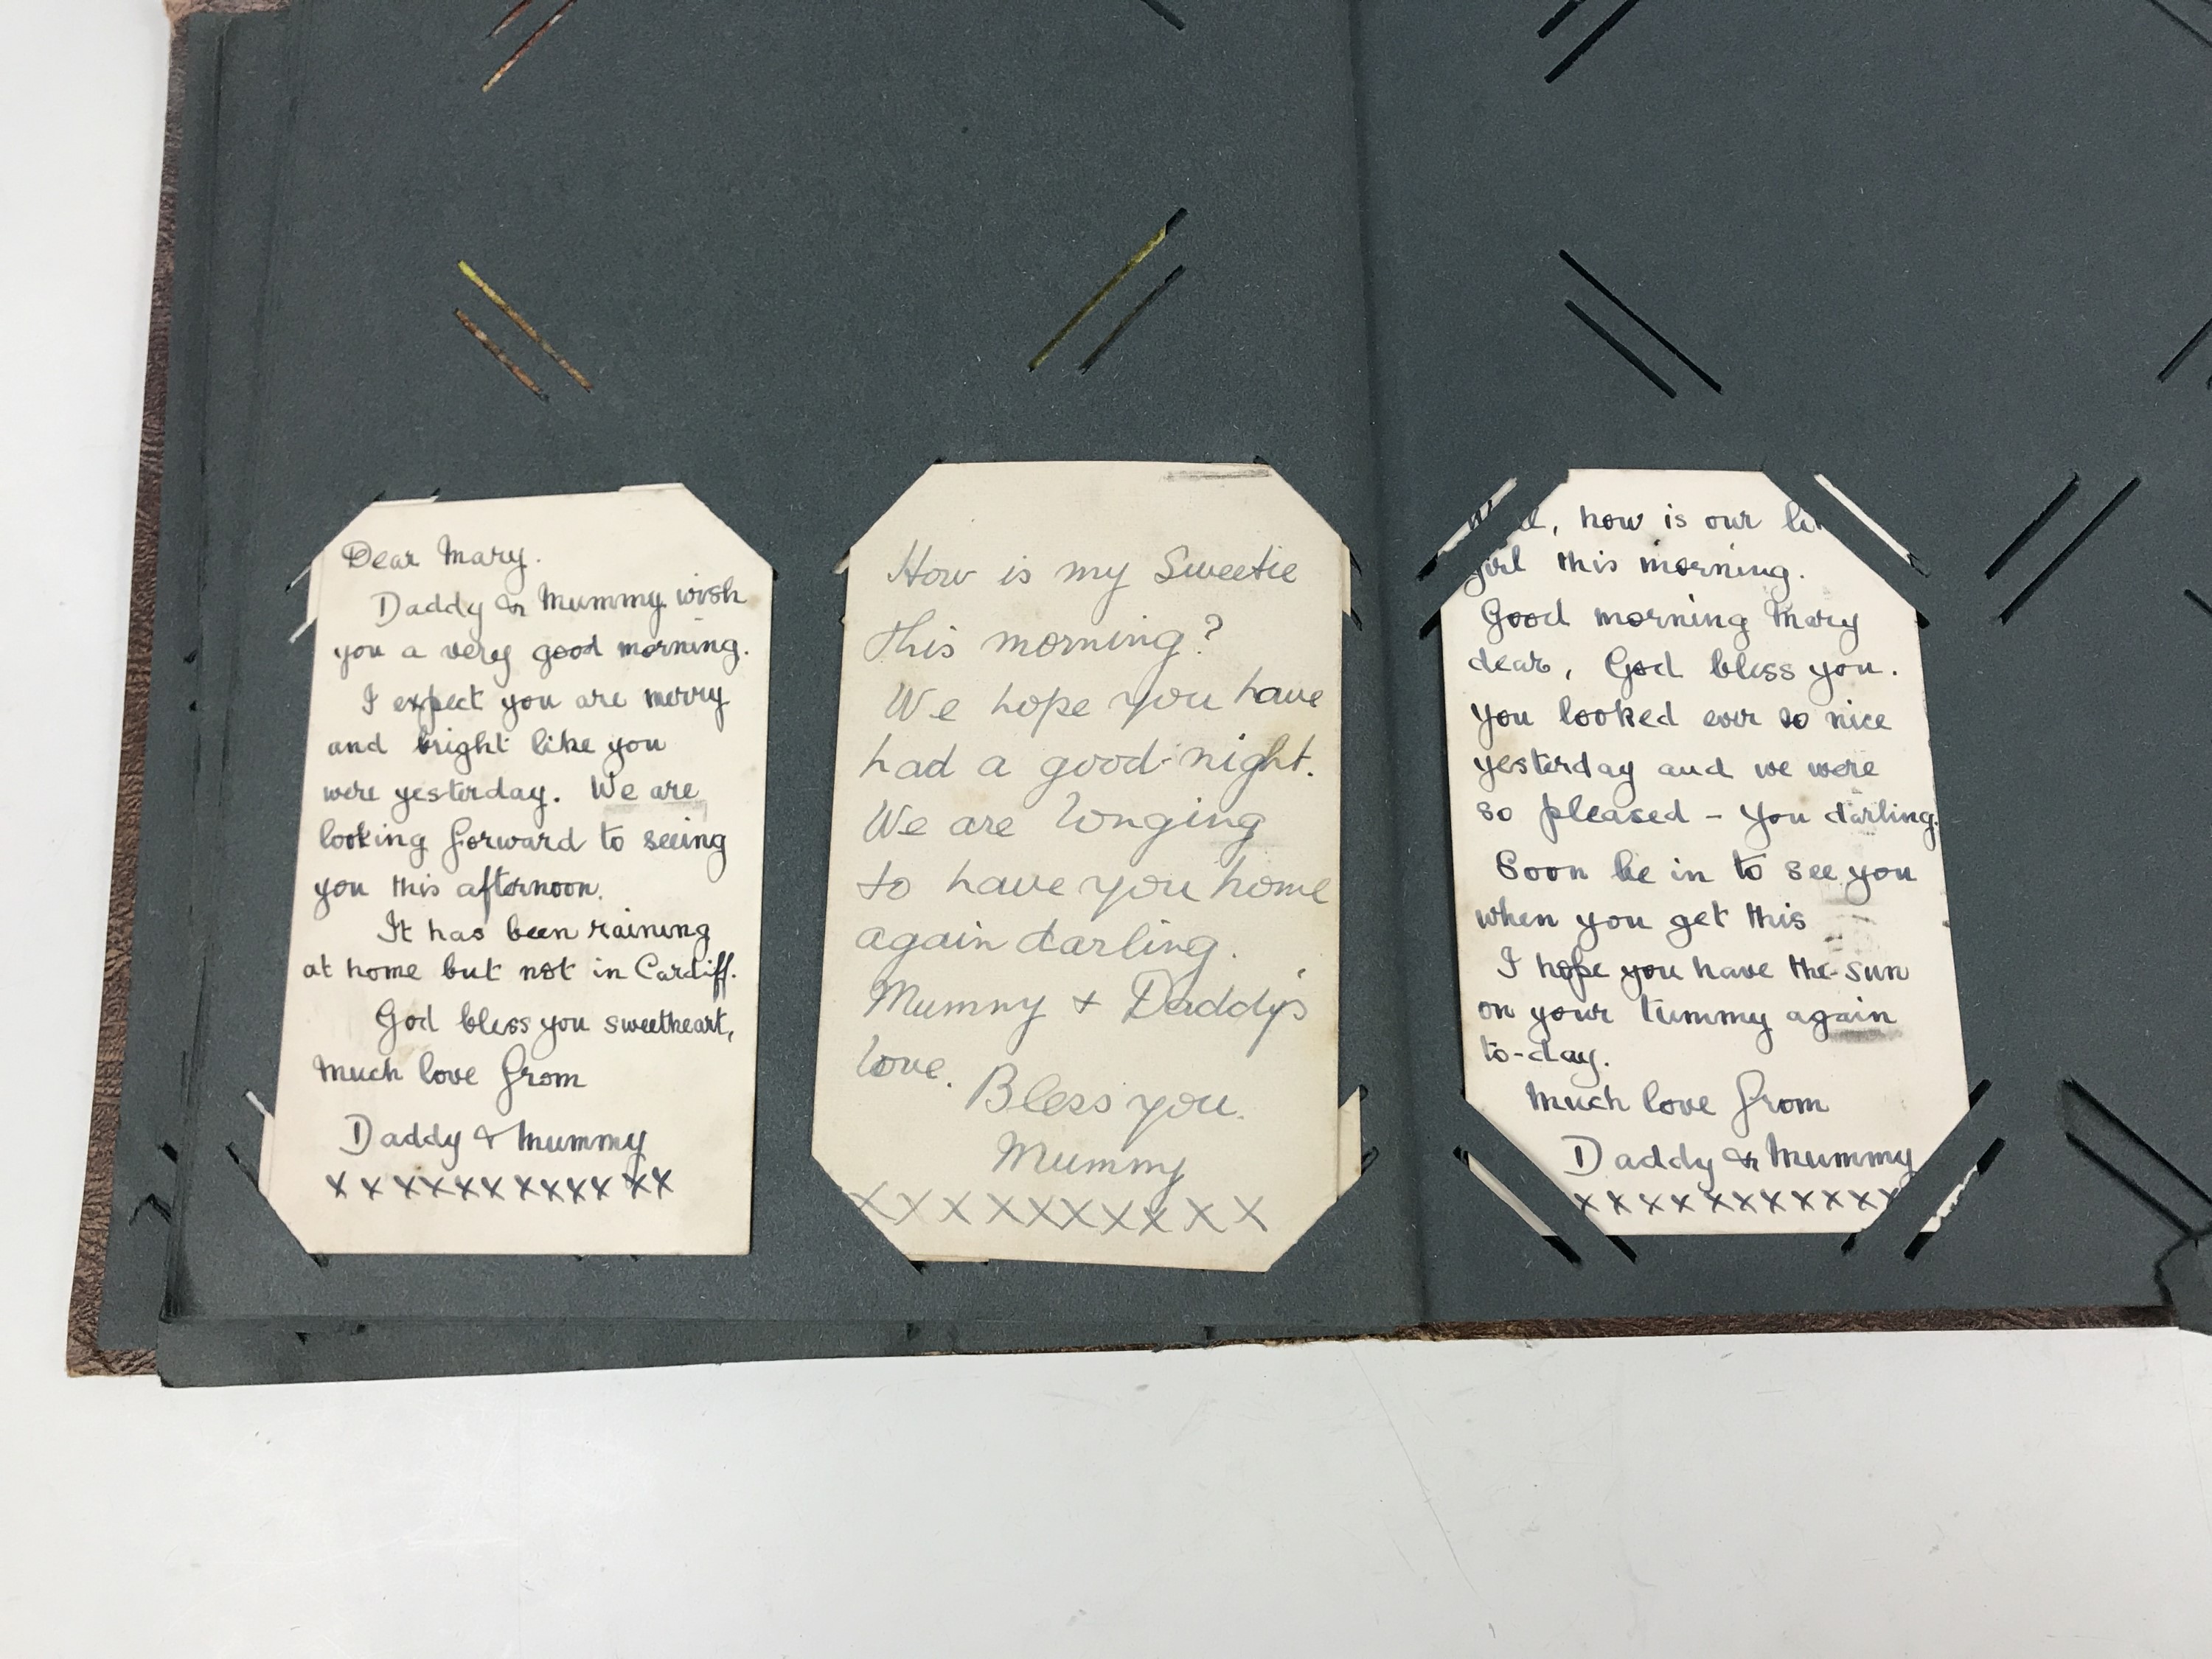 Dear Mary.
Daddy & Mummy wish
you a very good morning.
I expect you are merry
and bright like you
were yesterday. We are
looking forward to seeing
you this afternoon.
It has been raining
at home but not in Cardiff.
God bless you sweetheart,
Much love from
Daddy & Mummy
x x x x x x x x x x x x
How is my Sweetie
this morning?
We hope you have
had a good night.
We are longing
to have you home
again darling.
Mummy & Daddy's
love. Bless you.
Mummy
X X X X X X X X X X
how is our
girl this morning.
Good morning Mary
dear, God bless you.
You looked ever so nice
yesterday and we were
so pleased - You darling.
Soon be in to see you
when you get this
I hope you have the sun
on your tummy again
to-day.
Much love from
Daddy & Mummy
x x x x x x x x x x x x